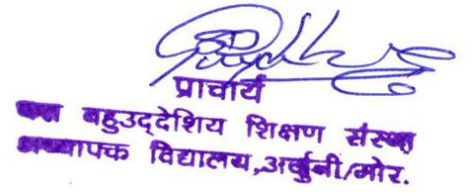 प्राचार्य
बहुउद्देशिय शिक्षण संस्था
विद्यालय,अर्जुनी/मोर.